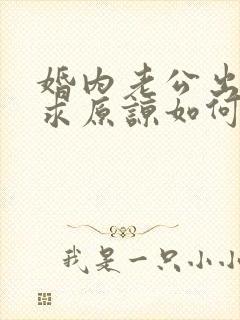 婚内老公出
求原谅如何
我是一只小小